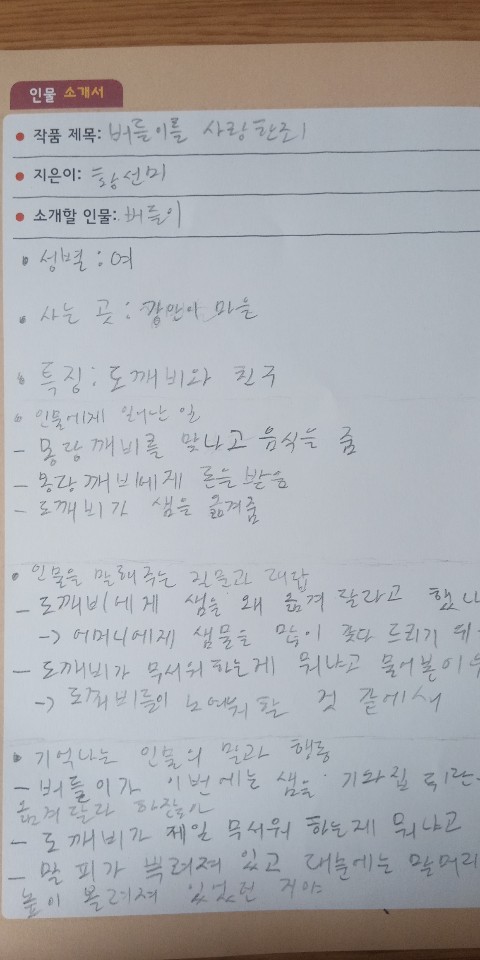 인물 소개서
작품 제목: 버들이를 사랑한죄
지은이: 황선미
소개할 인물: 버들이
성별: 여
사는 곳: 마을
특징: 도깨비와 친구
인물에게 일어난 일
- 몽당깨비를 만나고 음식을 줌
- 몽당깨비에게 돈을 받음
- 도깨비가 샘을 옮겨줌
인물을 말해주는 질문과 대답
- 도깨비에게 샘을 왜 옮겨 달라고 했나
-> 어머니에게 샘물을 많이 갖다 드리기 위
- 도깨비가 무서워하는게 뭐냐고 물어본 이
-> 도깨비들이 노여워 할 것 같에서
기억나는 인물의 말과 행동
- 버들이가 이번에는 샘을 기와집 뒤란
옮겨달라 하잖아
- 도깨비가 제일 무서워 하는게 뭐냐고
- 말 피가 뿌려져 있고 대문에는 말머리
높이 올려져 있었던 거야